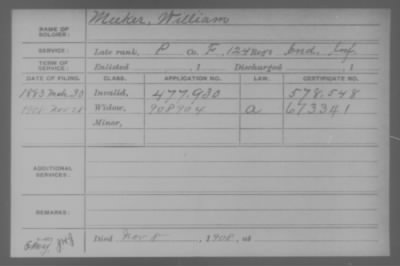 NAME OF SOLDIER: Meeker, William
SERVICE: Late rank, P Co. F, 124 Reg't Ind. Inf.
TERM OF SERVICE: Enlisted , 1 Discharged , 1
DATE OF FILING. CLASS. APPLICATION NO. LAW. CERTIFICATE NO.
1883 Mch. 30 Invalid, 477.930 578.548
1908 Nov 28 Widow, 908904 a 673341
Minor,
ADDITIONAL SERVICES:
REMARKS:
Died Nov 8 , 1908, at